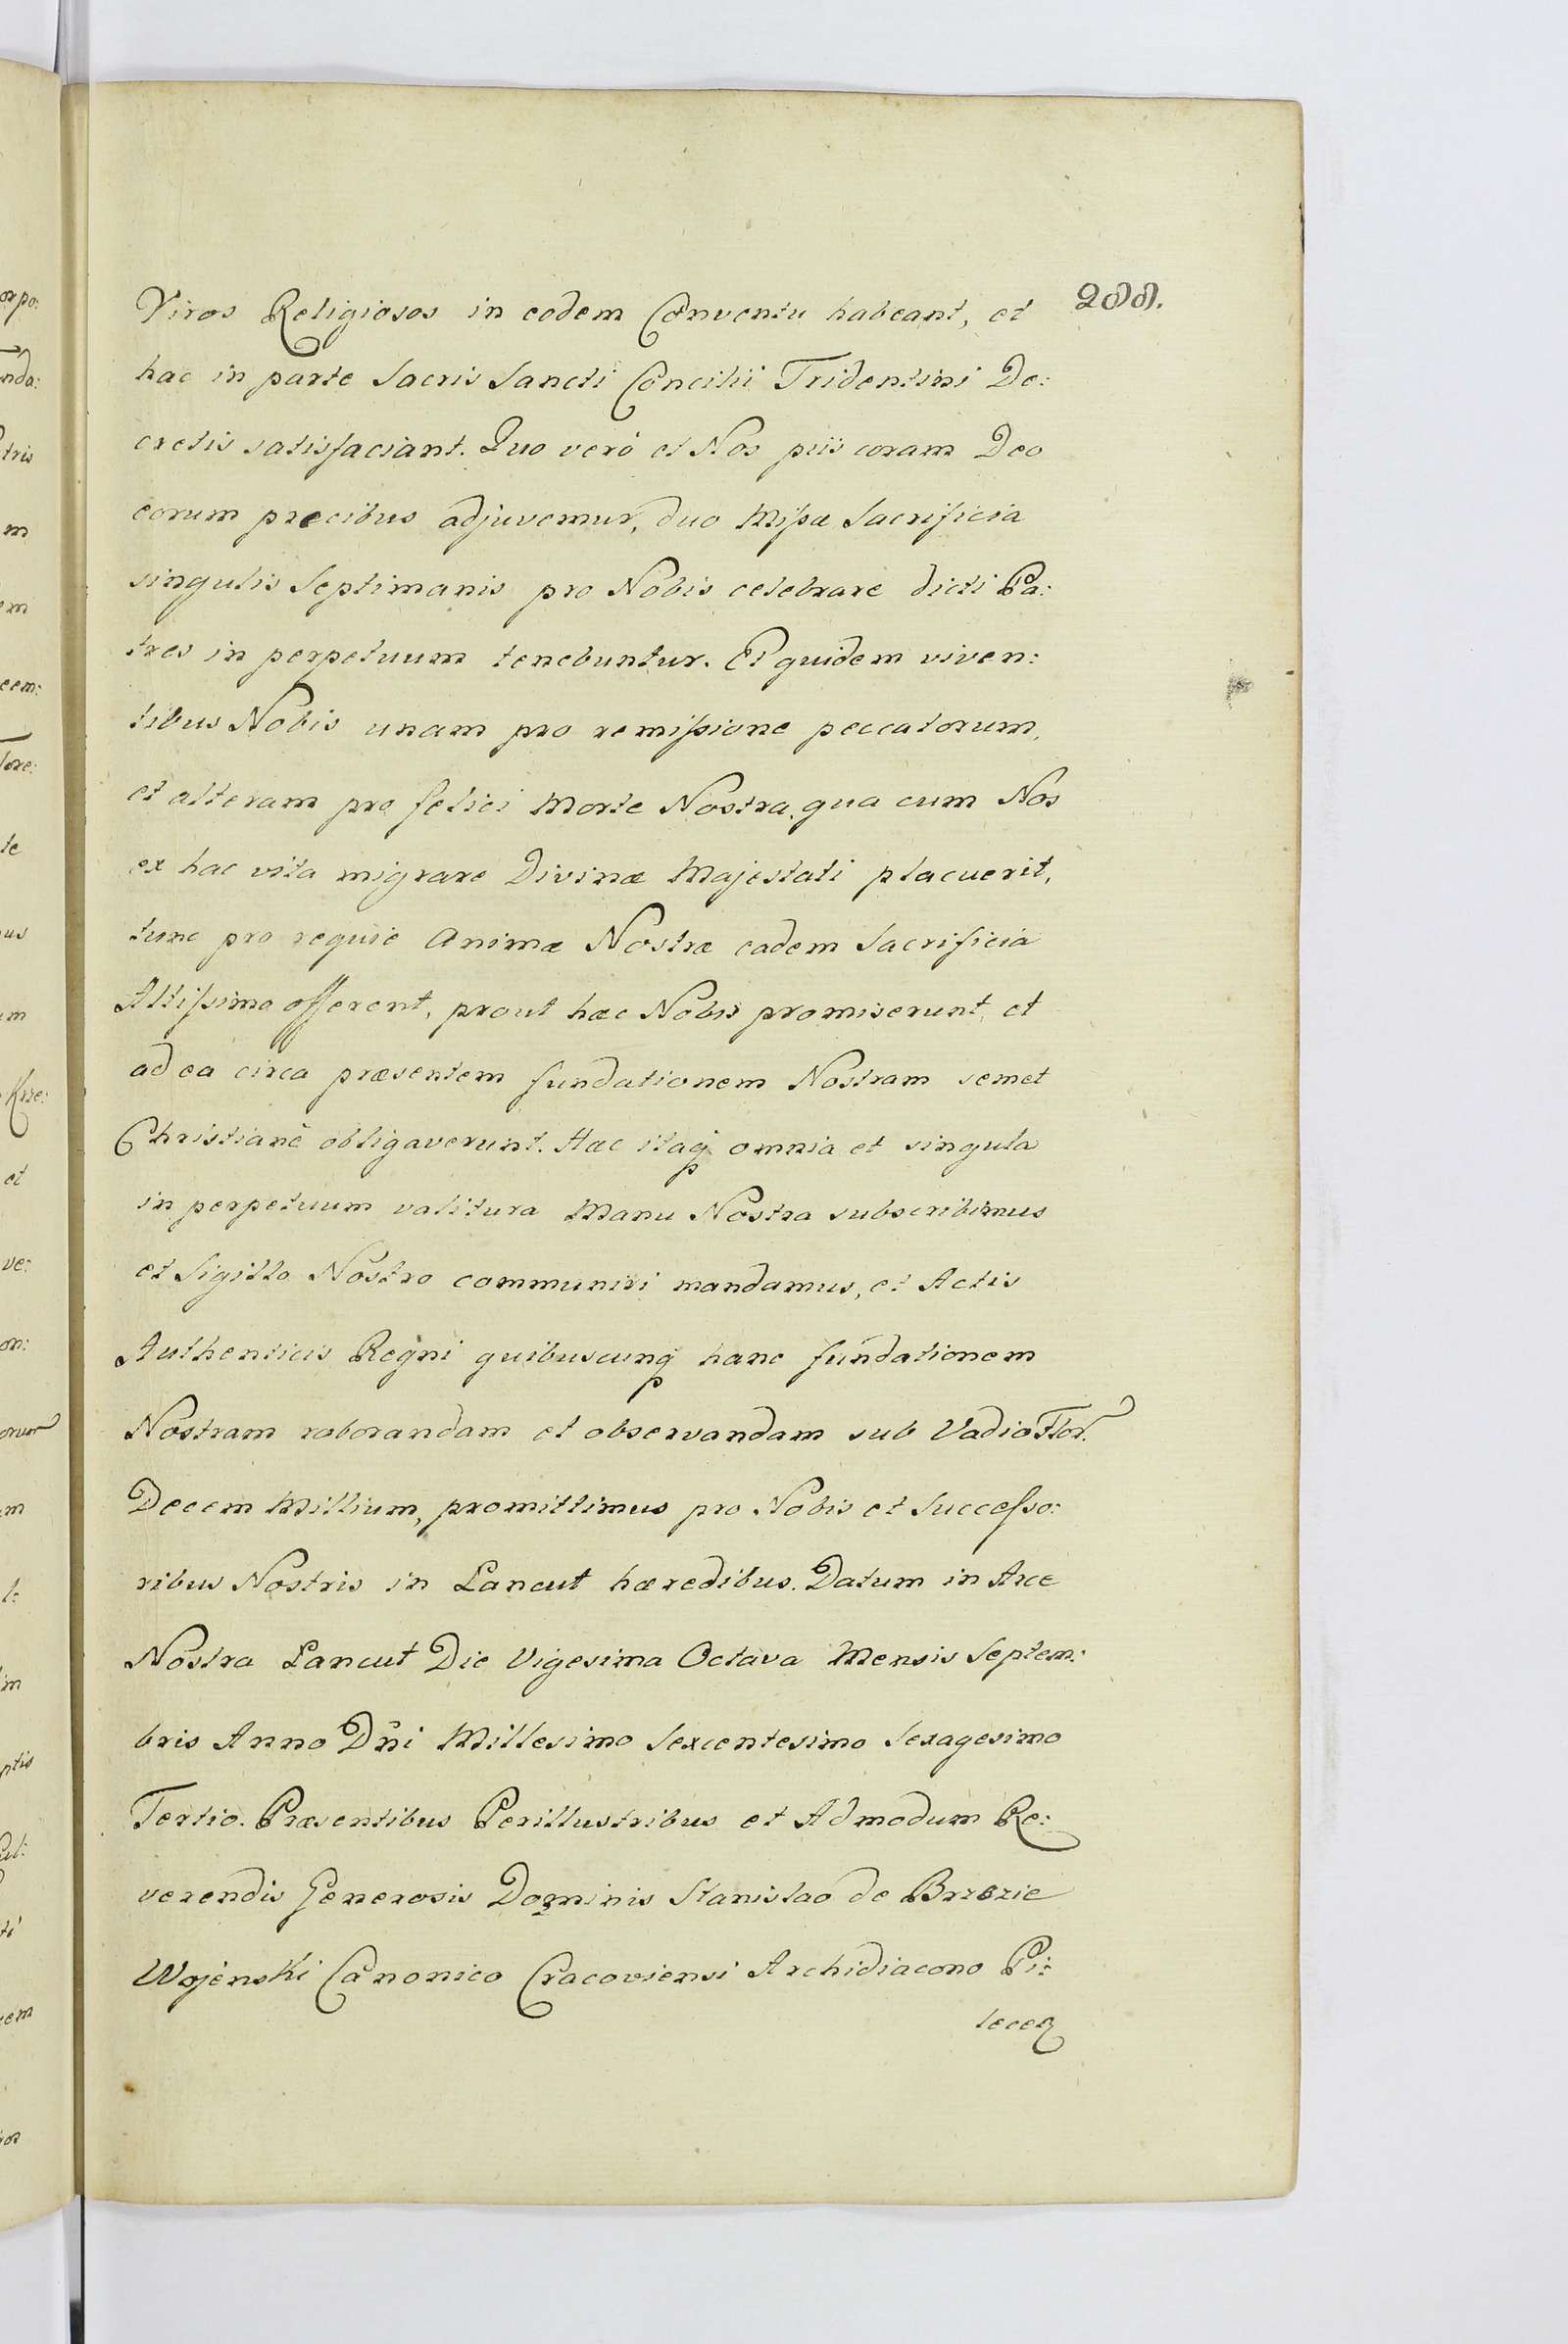 288.
Viros Religiosos in eodem Conventu habeant, et
hac in parte Sacris Sancti Concilii Tridentini De:
cretis satisfaciant. Quo verò et Nos piis coram Deo
eorum precibus adjuvemur, duo Missæ Sacrificia
singulis Septimanis pro Nobis celebrare dicti Pa:
tres in perpetuum tenebuntur. Et quidem viven:
tibus Nobis unam pro remissione peccatorum,
et alteram pro felici Morte Nostra, qua cum Nos
ex hac vita migrare Divinæ Majestati placuerit,
tunc pro requie Animæ Nostræ eadem Sacrificia
Altissimo offerent, prout hæc Nobis promiserunt, et
ad ea circa præsentem fundationem Nostram semet
Christianè obligaverunt. Hæc itaq omnia et singula
in perpetuum valitura Manu Nostra subscribimus
et Sigillo Nostro communiri mandamus, et Actis
Authenticis Regni quibuscunq hanc fundationem
Nostram roborandam et observandam sub Vadio Flor.
Decem Millium, promittimus pro Nobis et Successo:
ribus Nostris in Lancut hæredibus. Datum in Arce
Nostra Lancut Die Vigesima Octava Mensis Septem:
bris Anno Dñi Millesimo Sexcentesimo Sexagesimo
Tertio. Præsentibus Perillustribus et Admodum Re:
verendis Generosis Dominis Stanislao de Brzezie
Wojenski Canonico Cracoviensi Archidiacono Pi:
lecen